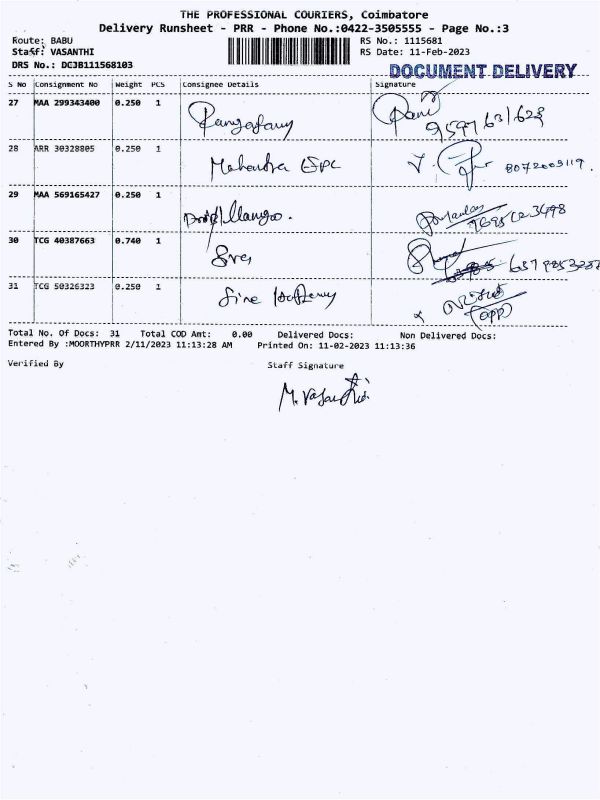 THE PROFESSIONAL COURIERS, Coimbatore
Delivery Runsheet - PRR - Phone No.:0422-3505555 - Page No.:3
Route: BABU RS No.: 1115681
Staff: VASANTHI RS Date: 11-Feb-2023
DRS No.: DCJB111568103
DOCUMENT DELIVERY
S No Consignment No Weight PCS Consignee Details Signature
27 MAA 299343400 0.250 1
28 ARR 30328805 0.250 1 Mahendra
29 MAA 569165427 0.250 1
30 TCG 40387663 0.740 1
31 TCG 50326323 0.250 1
Total No. Of Docs: 31 Total COD Amt: 0.00 Delivered Docs: Non Delivered Docs:
Entered By :MOORTHYPRR 2/11/2023 11:13:28 AM Printed On: 11-02-2023 11:13:36
Verified By Staff Signature
M. Vasanthi